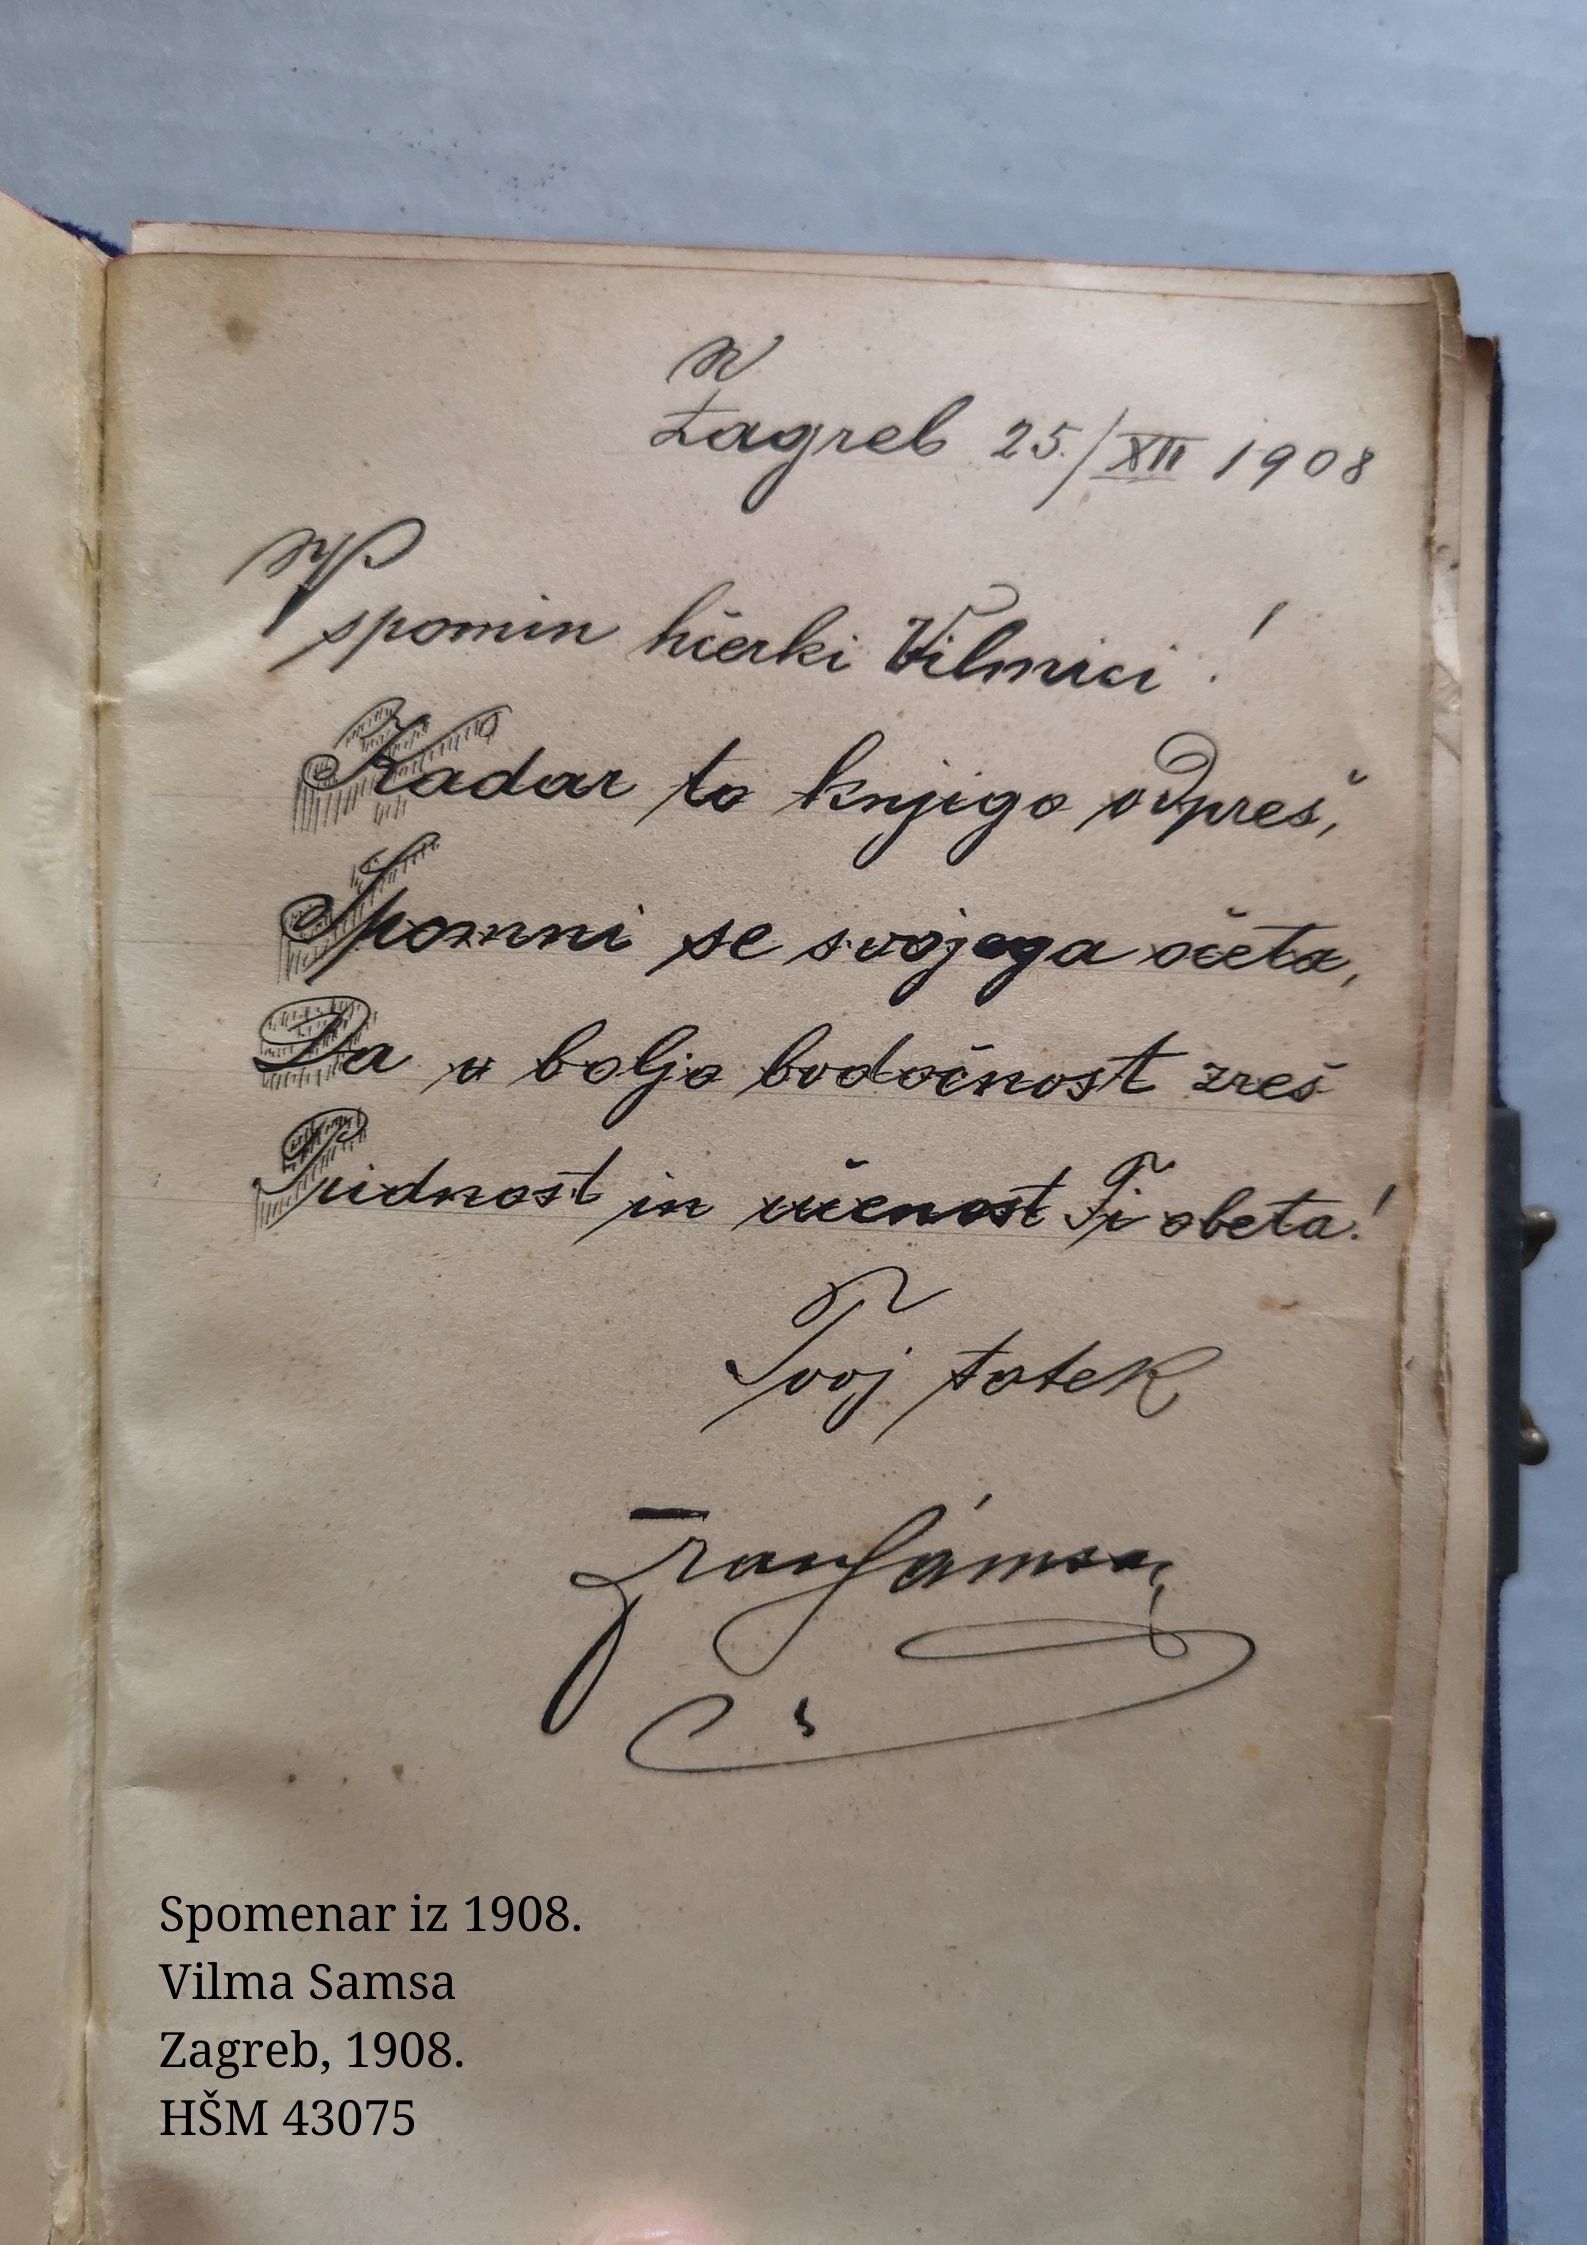 Zagreb 25./XII 1908
V spomin hčerki Vilmici!
Kadar to knjigo odpreš,
Spomni se svojega očeta,
Da v boljo bodočnost zreš
Pridnost in učenost Ti obeta!
Tvoj tatek
Fran Sámsa
Spomenar iz 1908.
Vilma Samsa
Zagreb, 1908.
HŠM 43075